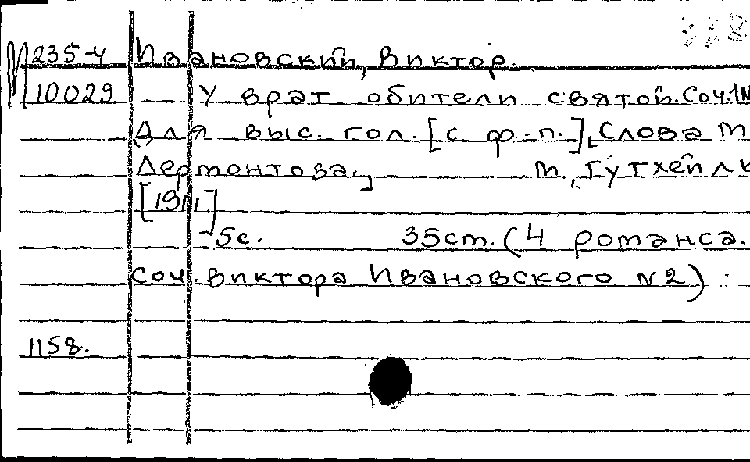 М 235-4 Ивановский, Виктор.
10029 У врат обители святой. Соч.1№
Для выс. гол. [с ф-п.], Слова М
Лермонтова, М., Гутхейль
[1911]
5с. 35cm. (4 романса.
соч. Виктора Ивановского №2)
1158.